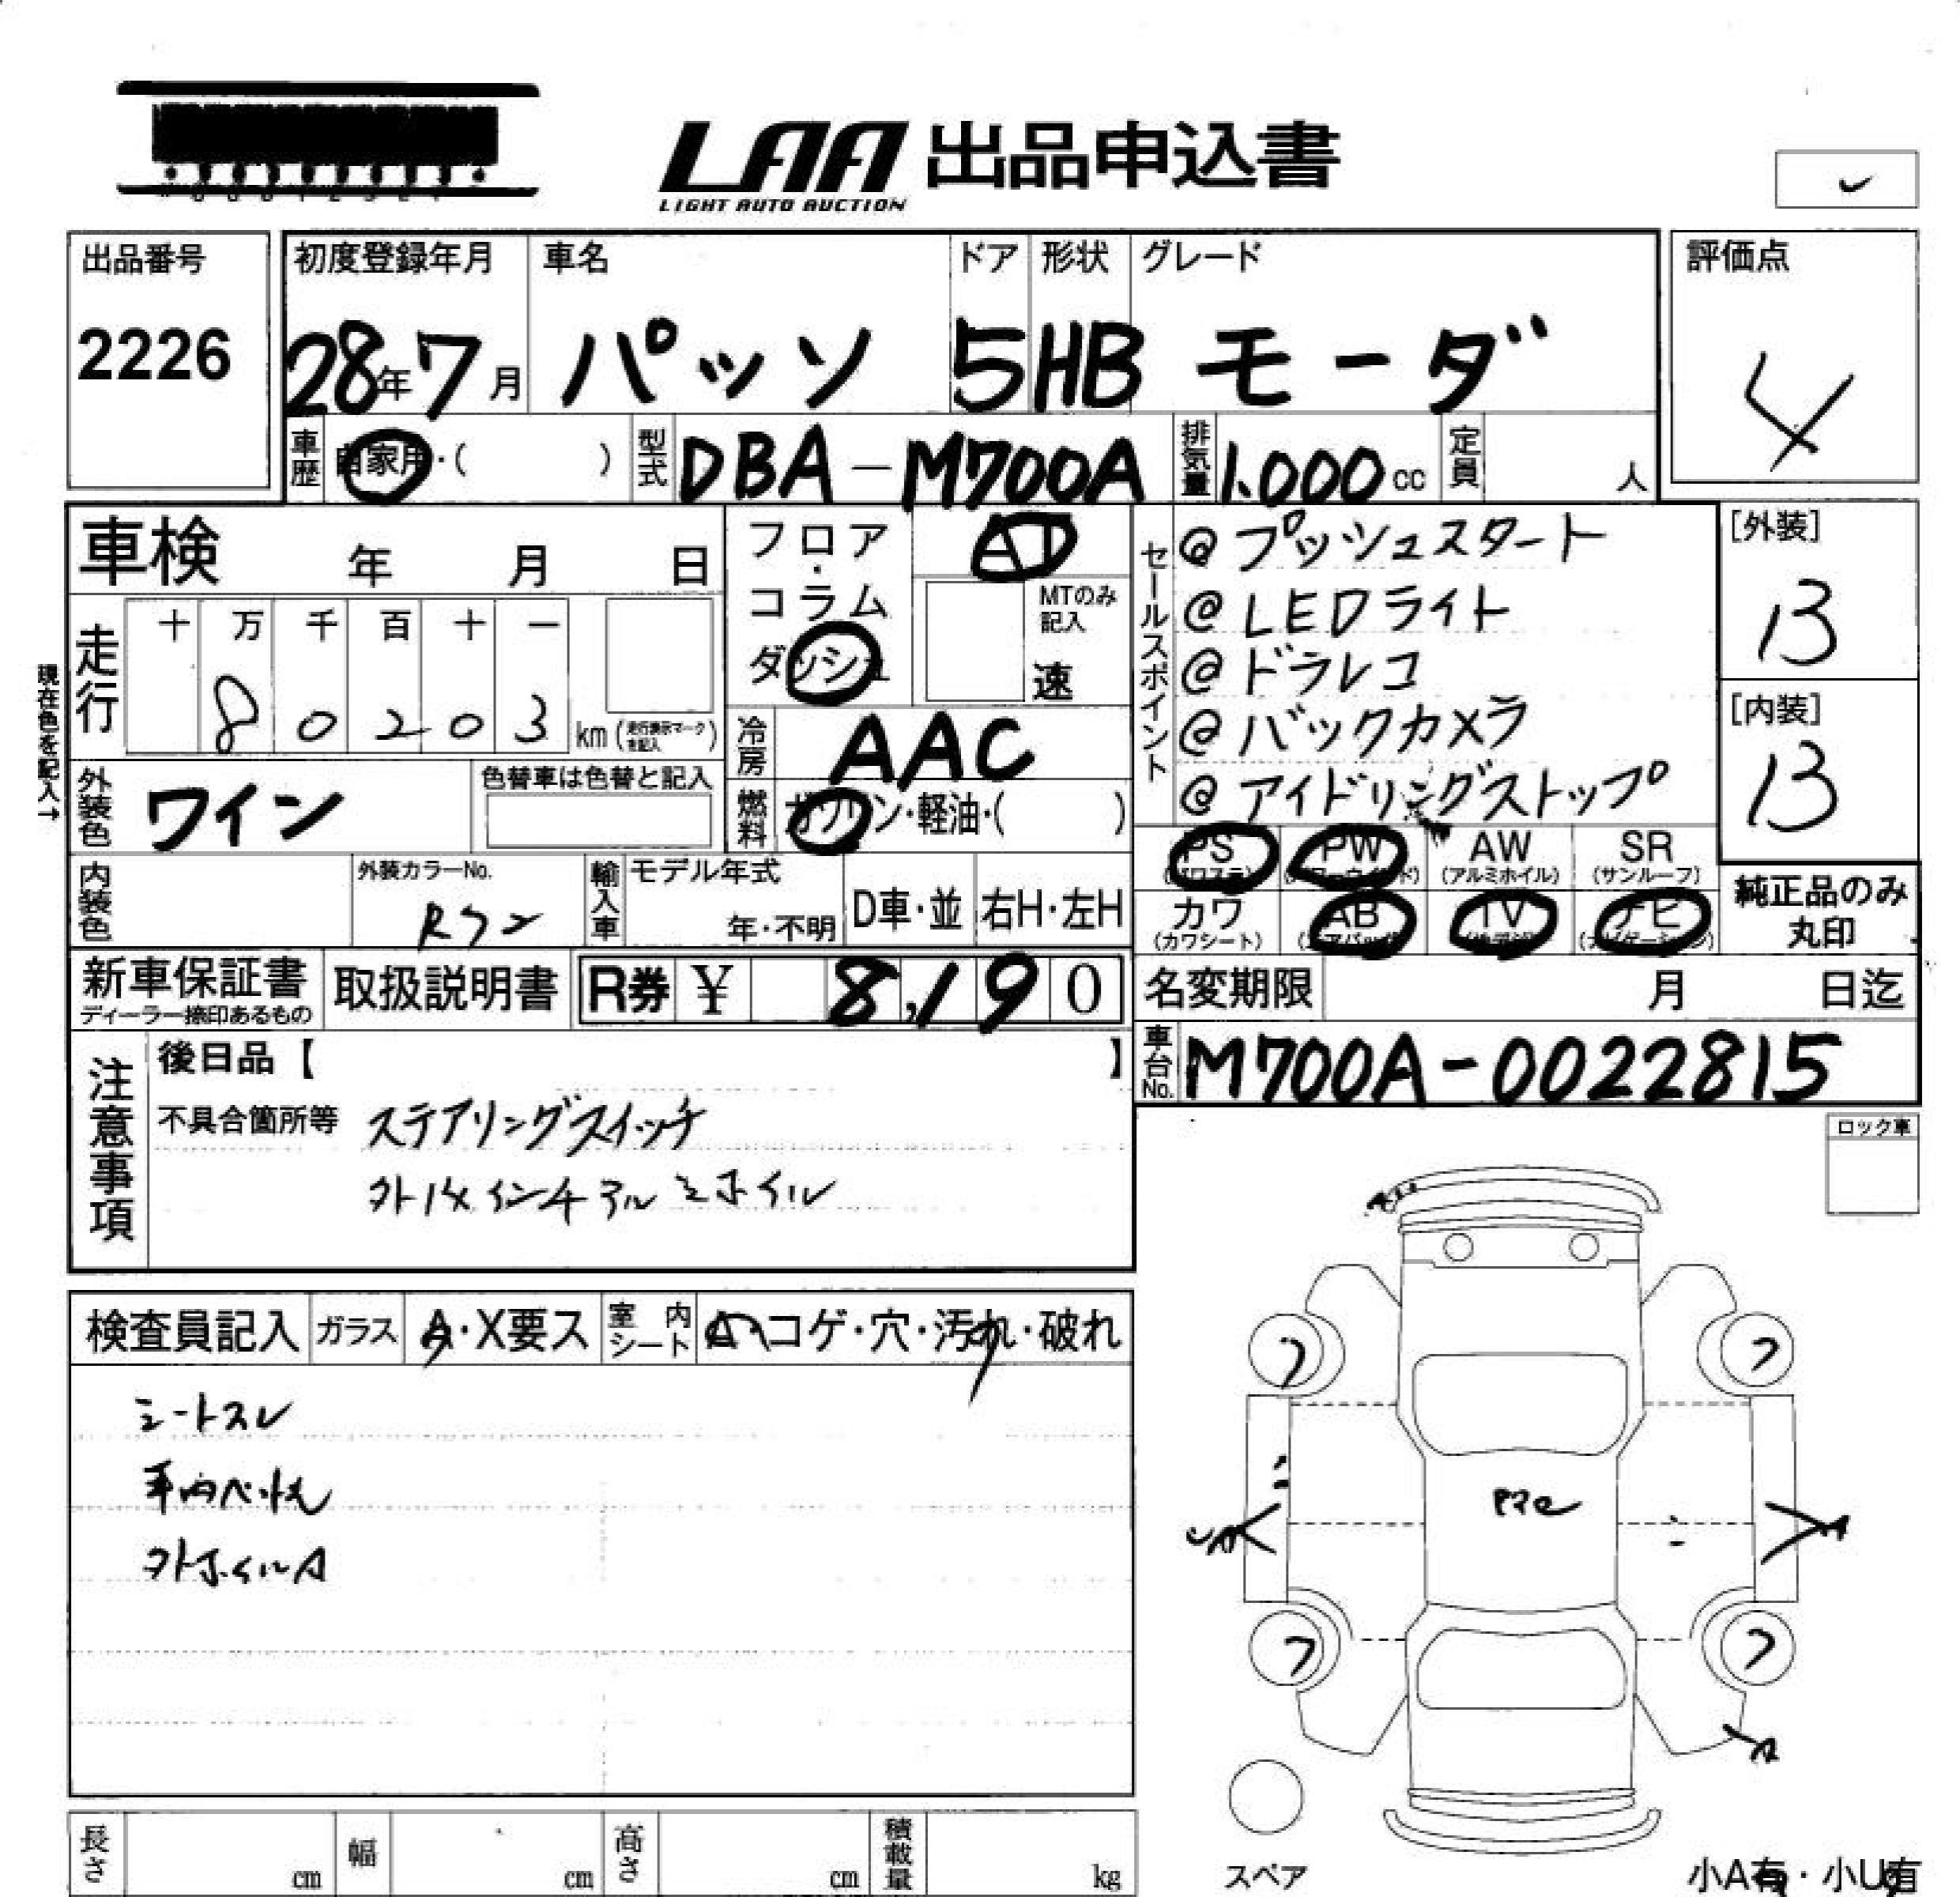 LAA 出品申込書
LIGHT AUTO AUCTION
出品番号
2226
初度登録年月 車名 ドア 形状 グレード
28年7月 パッソ 5 HB モーダ
評価点
4
車歴 自家用・( ) 型式 DBA-M700A 排気量 1.000cc 定員 人
車検 年 月 日
フロア・コラム
ダッシュ
AT
MTのみ記入
速
セールスポイント
@ プッシュスタート
@ LEDライト
@ ドラレコ
@ バックカメラ
@ アイドリングストップ
[外装]
B
[内装]
B
現在色を記入→
走行 十 万 千 百 十 一
8 0 2 0 3 km
冷房 AAC
外装色 ワイン 色替車は色替と記入
燃料 ガソリン・軽油・( )
PS PW AW SR
(パワステ) (パワーウインド) (アルミホイル) (サンルーフ)
カワ AB TV ナビ
(カワシート) (エアバッグ) (ナビゲーション)
純正品のみ
丸印
内装色 外装カラーNo. 輸入車 モデル年式
年・不明 D車・並 右H・左H
新車保証書 取扱説明書 R券 ¥ 8,190
ディーラー捺印あるもの
名変期限 月 日迄
車台No. M700A-0022815
注意事項
後日品【 】
不具合箇所等 ステアリングスイッチ
外14インチアルミホイル
ロック車
検査員記入 ガラス A・X要ス 室内シート コゲ・穴・汚れ・破れ
シートスレ
外ホイルA
長さ cm 幅 cm 高さ cm 積載量 kg
スペア
小A有・小U有